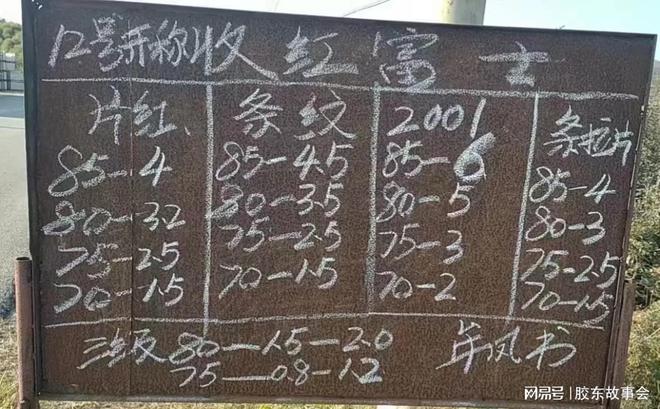 12号开称收红富士
片红 条纹 2001 条拉片
85-4 85-4.5 85-6 85-4
80-3.2 80-3.5 80-5 80-3
75-2.5 75-2.5 75-3 75-2.5
70-1.5 70-1.5 70-2 70-1.5
三级 80-1.5-2.0
75-0.8-1.2
网易号 | 胶东故事会